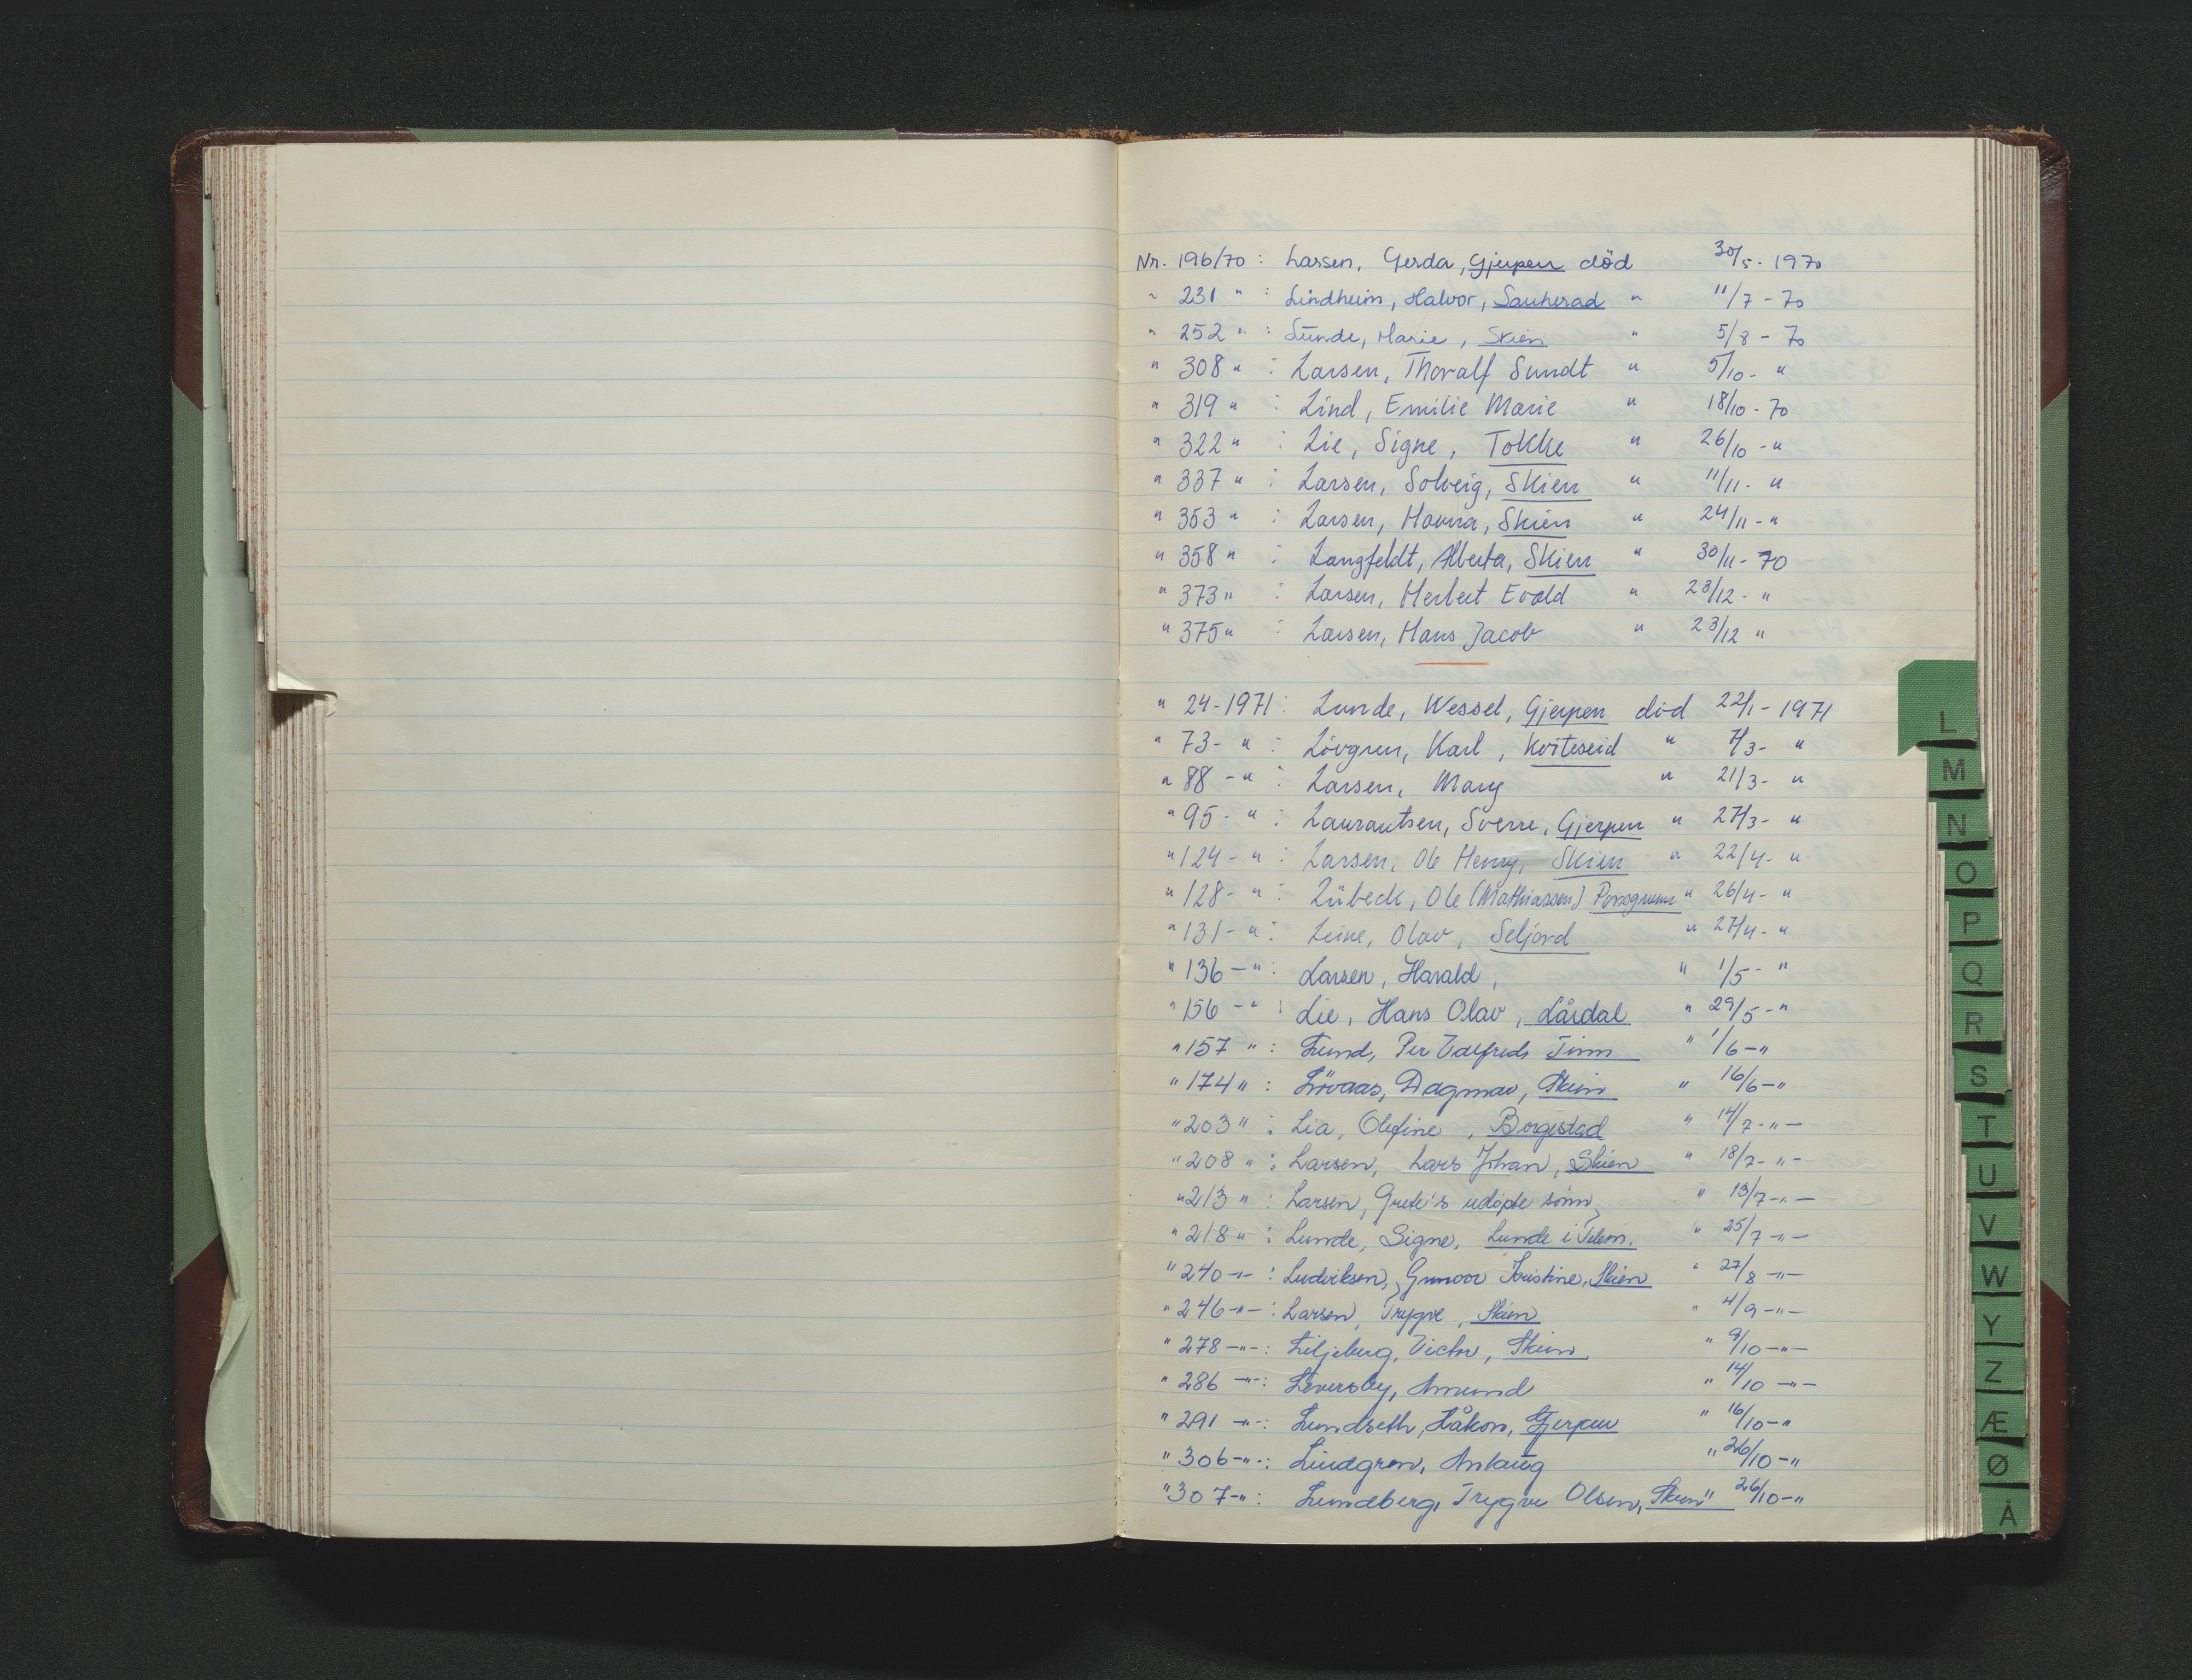 Nr. 196/70 : Larsen, Gerda, Gjerpen död 30/5 - 1970
" 231 " : Lindheim, Halvor, Sauherad " 11/7 - 70
" 252 " : Lunde, Marie, Skien " 5/8 - 70
" 308 " : Larsen, Thoralf Sundt " 5/10 - "
" 319 " : Lind, Emilie Marie " 18/10 - 70
" 322 " : Lie, Signe, Tokke " 26/10 - "
" 337 " : Larsen, Solveig, Skien " 11/11 - "
" 353 " : Larsen, Hanna, Skien " 24/11 - "
" 358 " : Langfeldt, Alberta, Skien " 30/11 - 70
" 373 " : Larsen, Herbert Evald " 23/12 - "
" 375 " : Larsen, Hans Jacob " 23/12 "
" 24 - 1971 : Lunde, Wessel, Gjerpen död 22/1 - 1971
" 73 - " : Lövgren, Karl, Kviteseid " 7/3 - "
" 88 - " : Larsen, Mary " 21/3 - "
" 95 - " : Laurantsen, Sverre, Gjerpen " 27/3 - "
" 124 - " : Larsen, Ole Henry, Skien " 22/4 - "
" 128 - " : Lübeck, Ole (Mathiassen) Porsgrunn " 26/4 - "
" 131 - " : Leine, Olav, Seljord " 27/4 - "
" 136 - " : Larsen, Harald, " 1/5 - "
" 156 - " : Lie, Hans Olav, Lårdal " 29/5 - "
" 157 " : Lund, Per Valfreds Tinn " 1/6 - "
" 174 " : Lövaas, Dagmar, Skien " 16/6 - "
" 203 " : Lia, Olefine, Borgestad " 14/7 - " -
" 208 " : Larsen, Lars Johan, Skien " 18/7 - " -
" 213 " : Larsen, Grete's udöpte sönn, " 13/7 - " -
" 218 " : Lunde, Signe, Lunde i Telem. " 25/7 - " -
" 240 - " - : Ludviksen, Gunvor Kristine, Skien " 27/8 - " -
" 246 - " - : Larsen, Trygve, Skien " 4/9 - " -
" 278 - " - : Liljeberg, Victor, Skien " 9/10 - " -
" 286 - " - : Leversby, Amund " 14/10 - " -
" 291 - " - : Lundseth, Håkon, Gjerpen " 16/10 - "
" 306 - " - : Lindgren, Anlaug " 26/10 - "
" 307 - " : Lundberg, Trygve Olsen, Skien " 26/10 - "
L
M
N
O
P
Q
R
S
T
U
V
W
Y
Z
Æ
Ø
Å